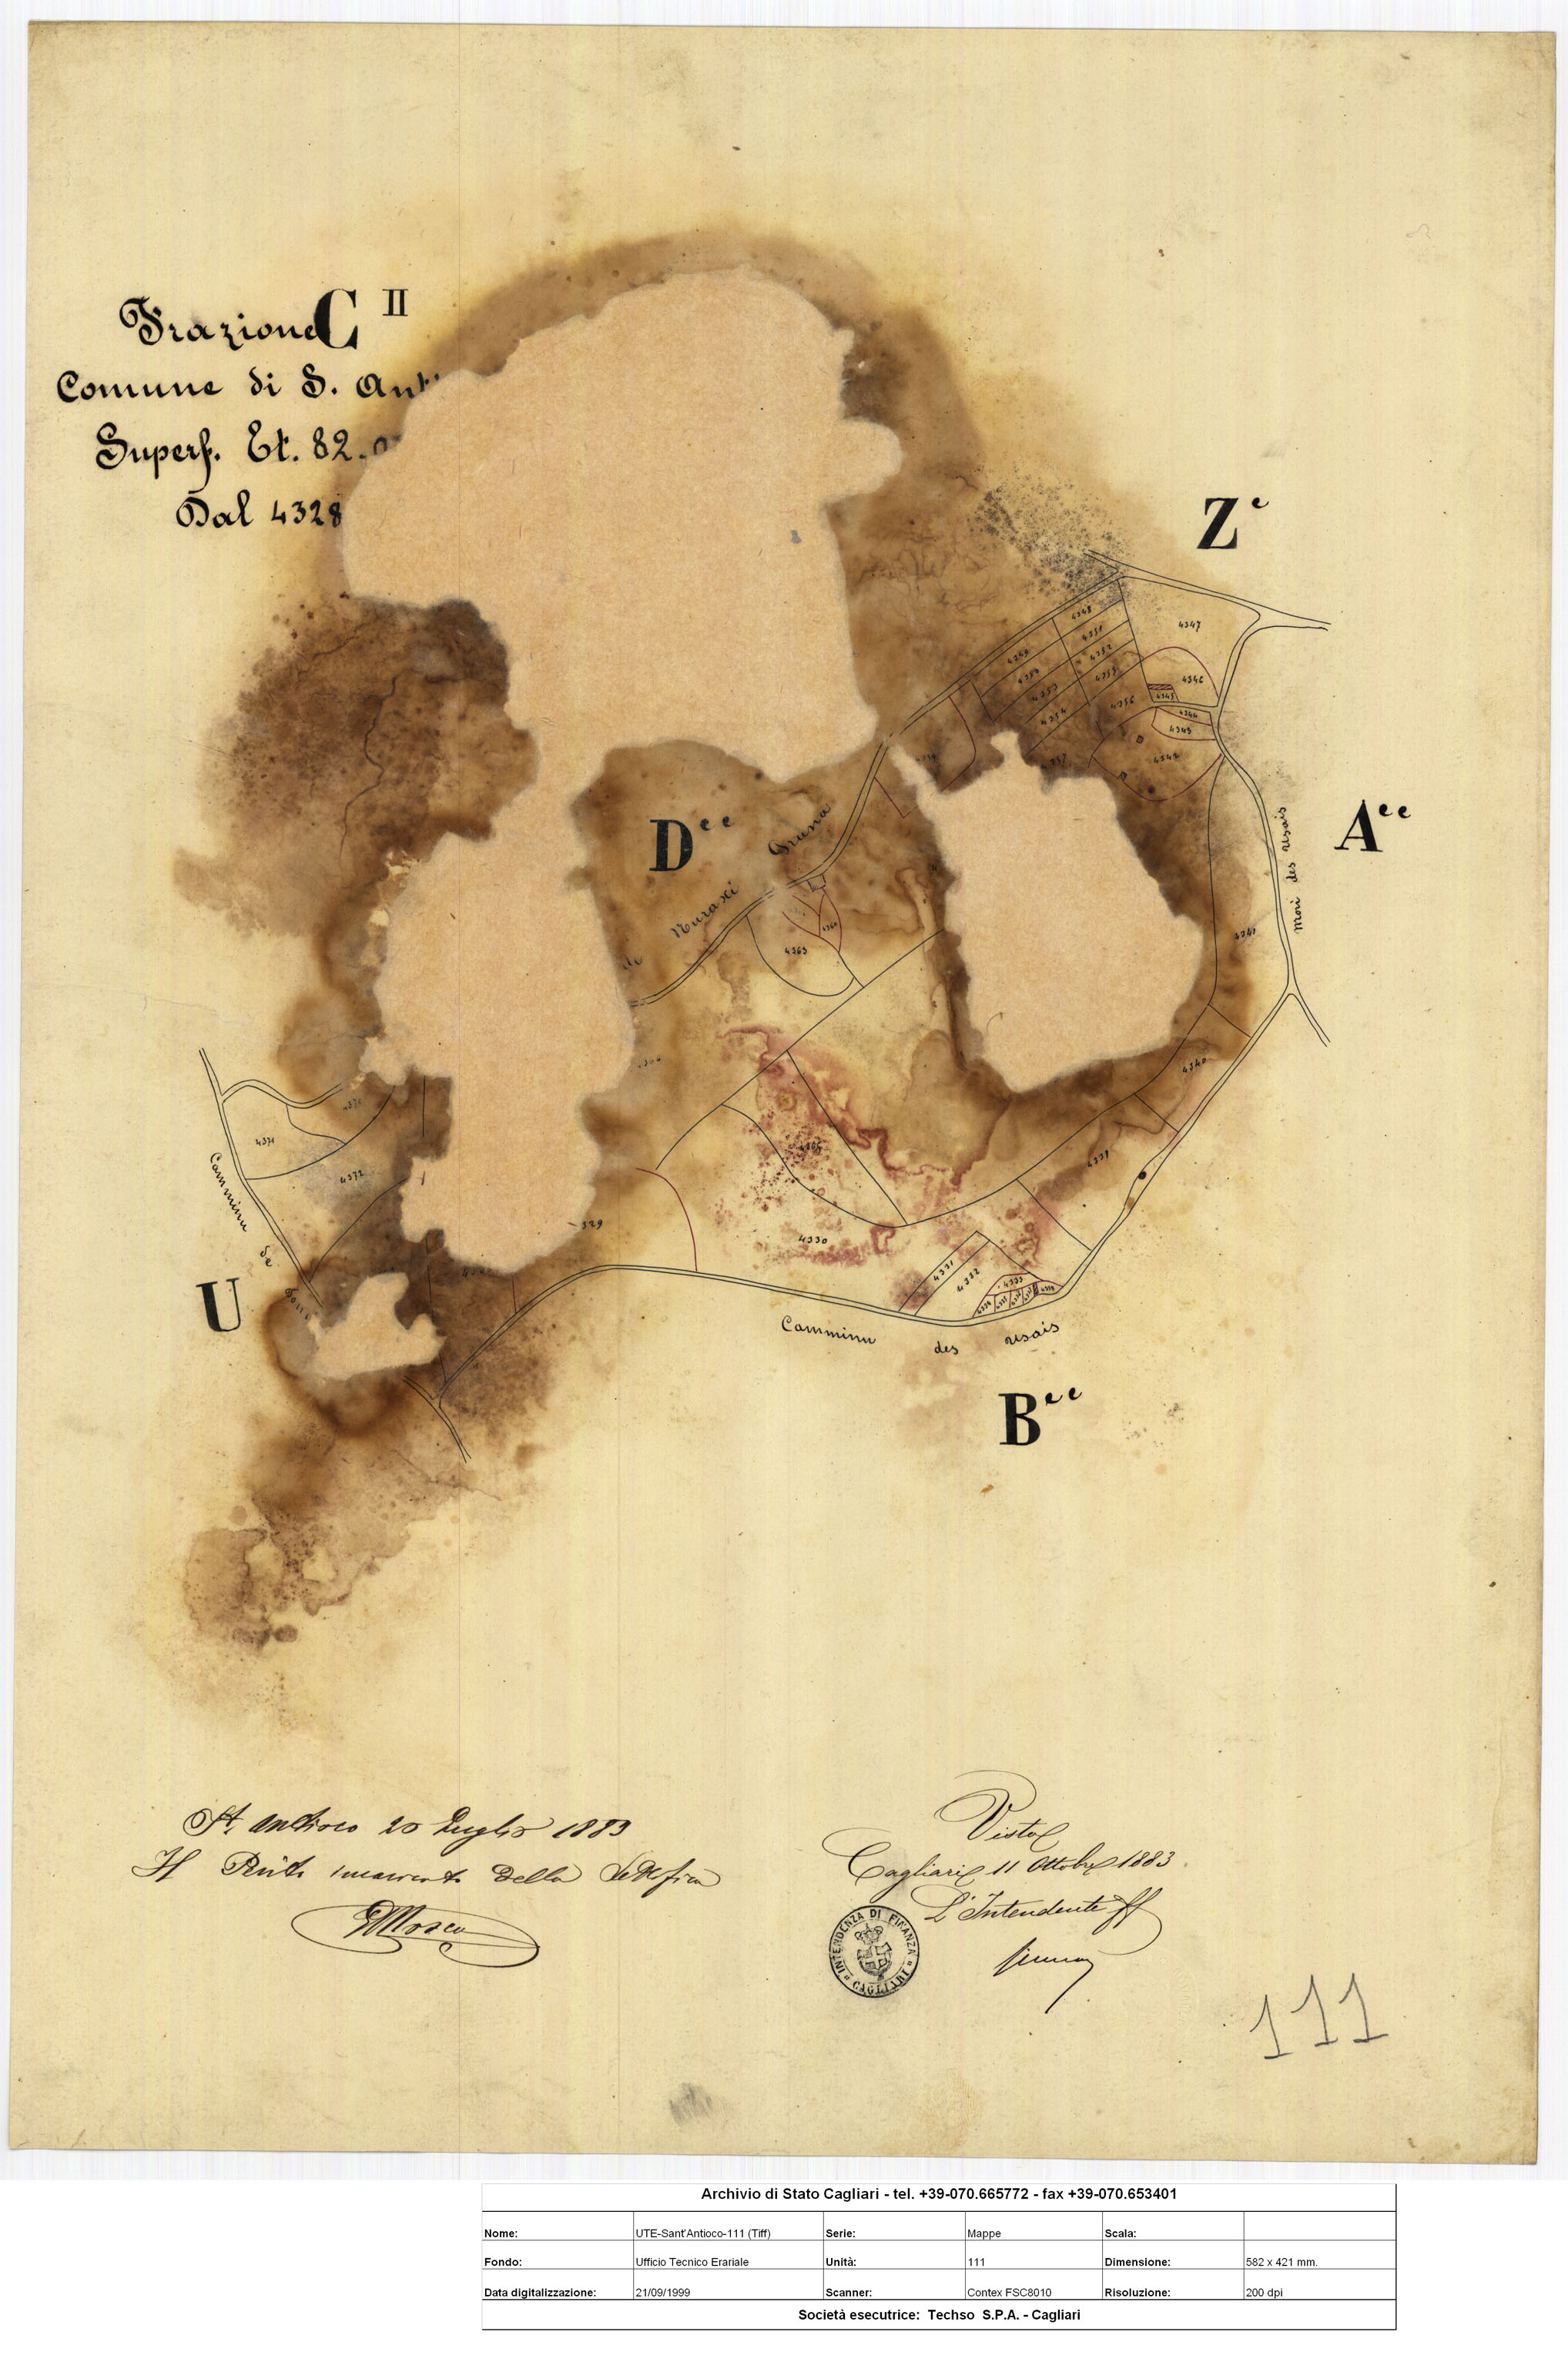 Frazione C II
Comune di S. Anti
Superf. Et. 82.
Dal 4328
Z e
4347
4348
4351
4352
4349
4350
4353
4353
4354
4356
4346
4345
4344
4343
4342
4357
A ee
mori des resais
D ee
de Nuraxi Gruna
4341
4363
4340
4371
4372
4339
Camminu de
329
4330
4331
4332
4333
U
Camminu des resais
B ee
St. Antioco 20 Luglio 1883
Il Perito incaricato della
GMosca
Visto
Cagliari 11 Ottobre 1883
L'Intendente ff
INTENDENZA DI FINANZA
CAGLIARI
111
Archivio di Stato Cagliari - tel. +39-070.665772 - fax +39-070.653401
Nome: UTE-Sant'Antioco-111 (Tiff) Serie: Mappe Scala:
Fondo: Ufficio Tecnico Erariale Unità: 111 Dimensione: 582 x 421 mm.
Data digitalizzazione: 21/09/1999 Scanner: Contex FSC8010 Risoluzione: 200 dpi
Società esecutrice: Techso S.P.A. - Cagliari